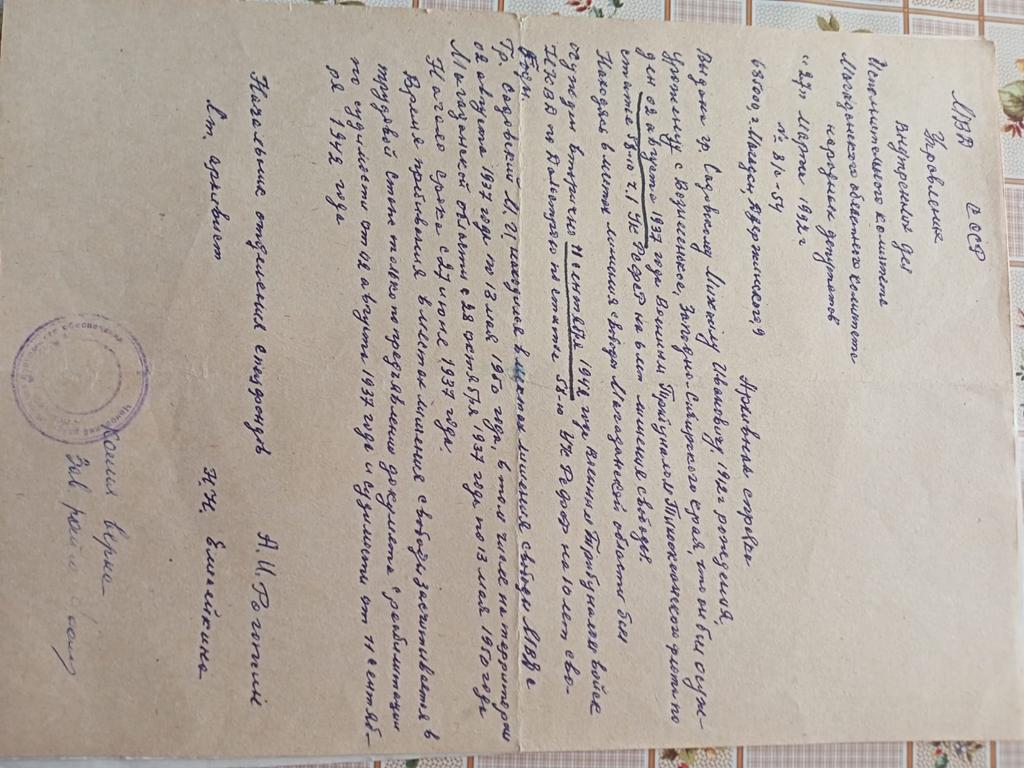 МВД СССР
Управление
Внутренних дел
Исполнительного комитета
Магаданского областного комитета
народных депутатов
"27" марта 1992 г
№ 3/с-54
685000 г Магадан, Дзержинского, 9
Архивная справка
Выдана гр. Садовскому Михаилу Ивановичу, 1912 г рождения,
Уроженцу с Вознесенское, Западно-Сибирского края, что он был осуж-
ден 02 августа 1937 года Военным Трибуналом Тихоокеанского флота по
статье 58-10 ч.1 УК РСФСР на 6 лет лишения свободы.
Находясь в местах лишения свободы Магаданской области был
осужден вторично 11 сентября 1942 года военным Трибуналом войск
НКВД по Дальстрою по статье 58-10 УК РСФСР на 10 лет сво-
боды.
Гр. Садовский М. И. находился в местах лишения свободы МВД с
02 августа 1937 года по 13 мая 1950 года, в том числе на территории
Магаданской области с 23 октября 1937 года по 13 мая 1950 года
Начало срока с 27 июня 1937 года.
Время пребывания в местах лишения свободы засчитывается в
трудовой стаж только по предъявлению документа о реабилитации
по судимости от 02 августа 1937 года и судимости от 11 сентяб-
ря 1942 года
Начальник отделения спецфондов А. И. Рогогин
Ст. архивист Н. Н. Емельянкина
Копия верна
Зав